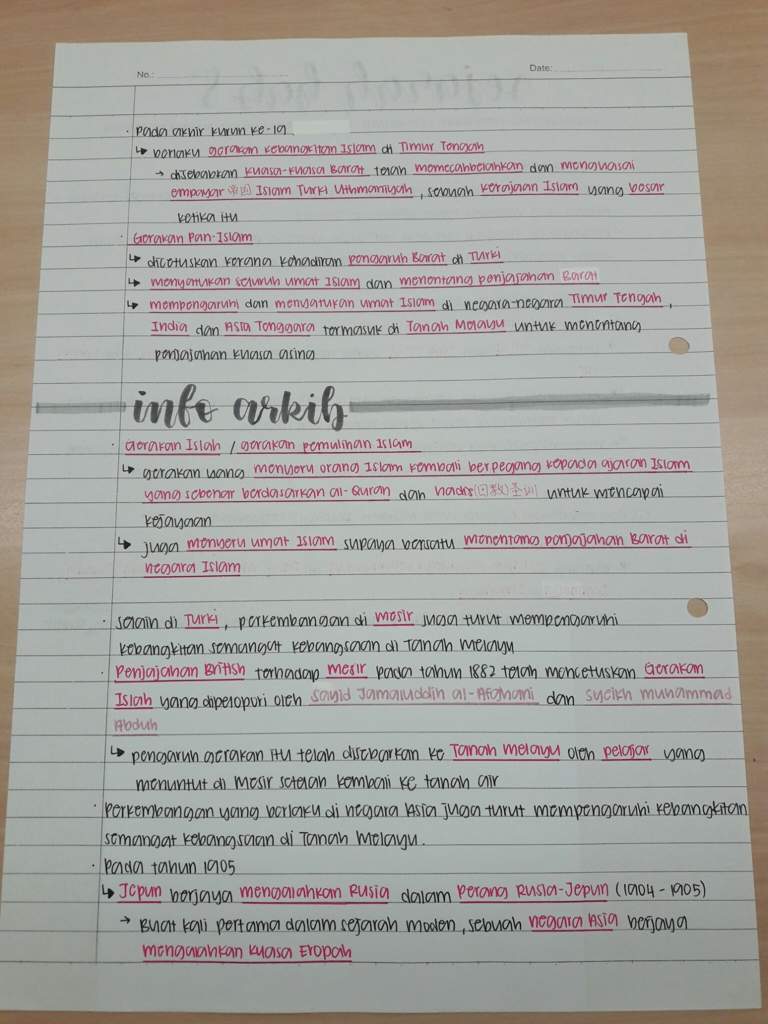 No.:
Date:
• Pada akhir kurun ke-19
↳ berlaku gerakan kebangkitan Islam di Timur Tengah
→ disebabkan kuasa-kuasa Barat telah memecahbelahkan dan menguasai
empayar 帝国 Islam Turki Uthmaniyah, sebuah kerajaan Islam yang besar
ketika itu
• Gerakan Pan-Islam
↳ dicetuskan kerana kehadiran pengaruh Barat di Turki
↳ menyatukan seluruh umat Islam dan menentang penjajahan Barat
↳ mempengaruhi dan menyatukan umat Islam di negara-negara Timur Tengah,
India dan Asia Tenggara termasuk di Tanah Melayu untuk menentang
penjajahan kuasa asing
info arkib
• Gerakan Islah / gerakan pemulihan Islam
↳ gerakan yang menyeru orang Islam kembali berpegang kepada ajaran Islam
yang sebenar berdasarkan al-Quran dan hadis (回教)圣训 untuk mencapai
kejayaan
↳ juga menyeru umat Islam supaya bersatu menentang penjajahan Barat di
negara Islam
• Selain di Turki, perkembangan di Mesir juga turut mempengaruhi
kebangkitan semangat kebangsaan di Tanah Melayu
• Penjajahan British terhadap Mesir pada tahun 1882 telah mencetuskan Gerakan
Islah yang dipelopori oleh Sayid Jamaluddin al-Afghani dan Syeikh Muhammad
Abduh
↳ pengaruh gerakan itu telah disebarkan ke Tanah Melayu oleh pelajar yang
menuntut di Mesir setelah kembali ke tanah air
• Perkembangan yang berlaku di negara Asia juga turut mempengaruhi kebangkitan
semangat kebangsaan di Tanah Melayu.
• Pada tahun 1905
↳ Jepun berjaya mengalahkan Rusia dalam Perang Rusia-Jepun (1904-1905)
→ Buat kali pertama dalam sejarah moden, sebuah negara Asia berjaya
mengalahkan kuasa Eropah